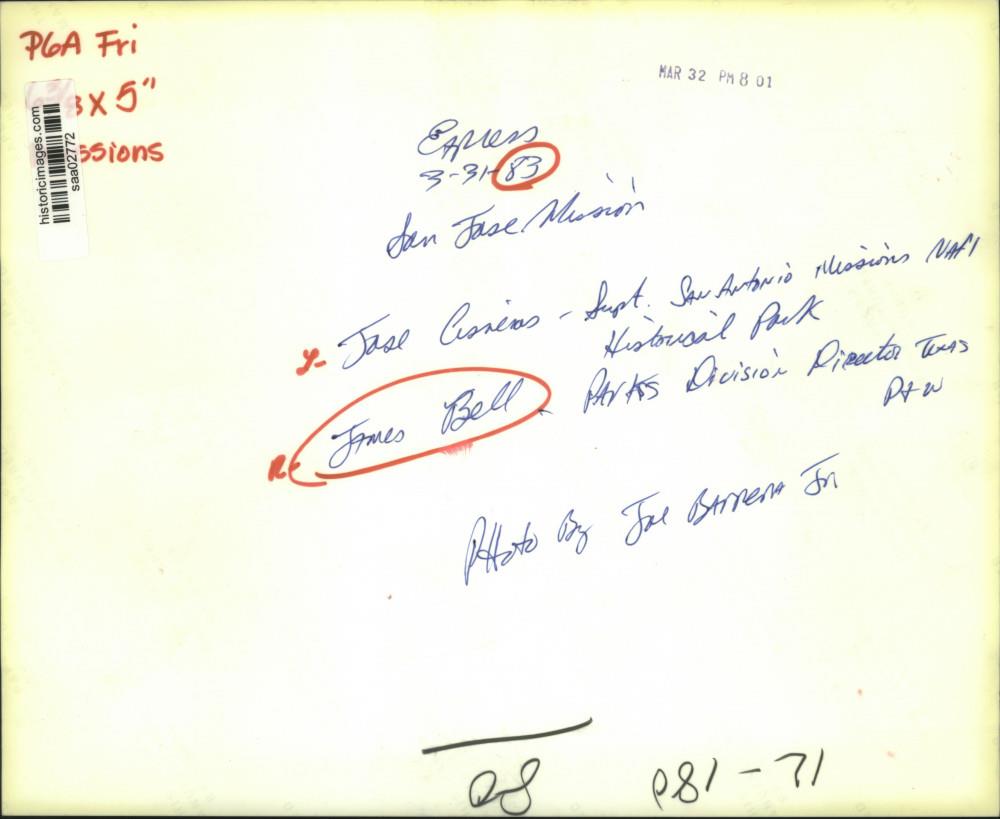 P6A Fri
x 5"
ssions
historicimages.com
saa02772
MAR 32 PM 8 01
Express
3-31-83
San Jose Mission
L- Jose Cisneros - Supt. San Antonio Missions Nat'l
Historical Park
R- James Bell - Parks Division Director Texas
P+W
Photo By Joe Barrera Jr
P81-71